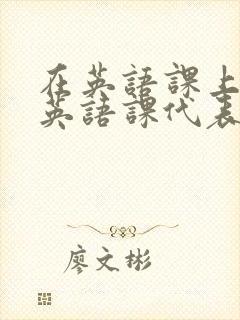 在英語課上
英語課代表
廖文彬